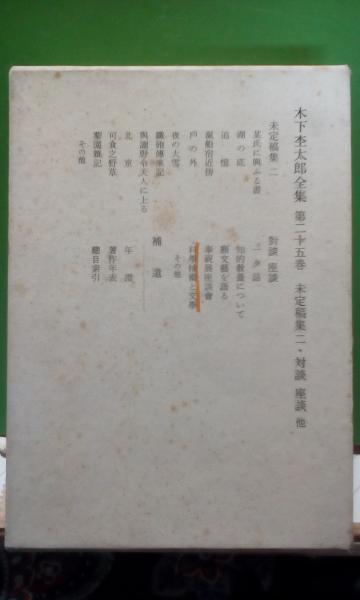 木下杢太郎全集 第二十五巻 未定稿集二・対談 座談 他
未定稿集 二
某氏に與ふる書
湖の底
追憶
瀛船宿近傍
戸の外
夜の大雪
鐵砲傳來記
與謝野令夫人に上る
北京
可食之野草
藜園雜記
その他
對談 座談
一夕話
知的敎養について
醫文藝を語る
科學技術と文學
その他
補遺
年譜
著作年表
總目索引